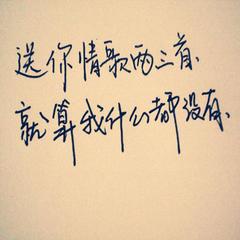 送你情歌两三首、
就算我什么都没有、